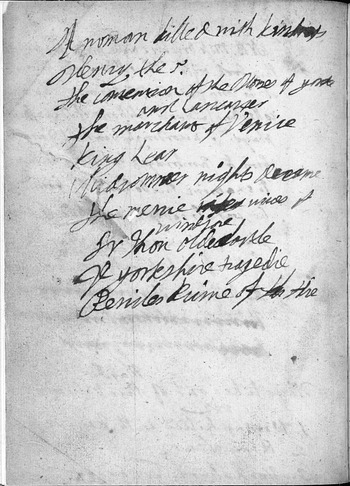 A woman killed with kindnes
Henry the 5.
the contension of the Roses of yorke
and lancaster
the marchant of Venice
King Lear
Midsommer nights dreame
the merrie wives of
winsore
Sr Ihon oldecastle
A yorkeshire tragedie
Peniles Rime of the